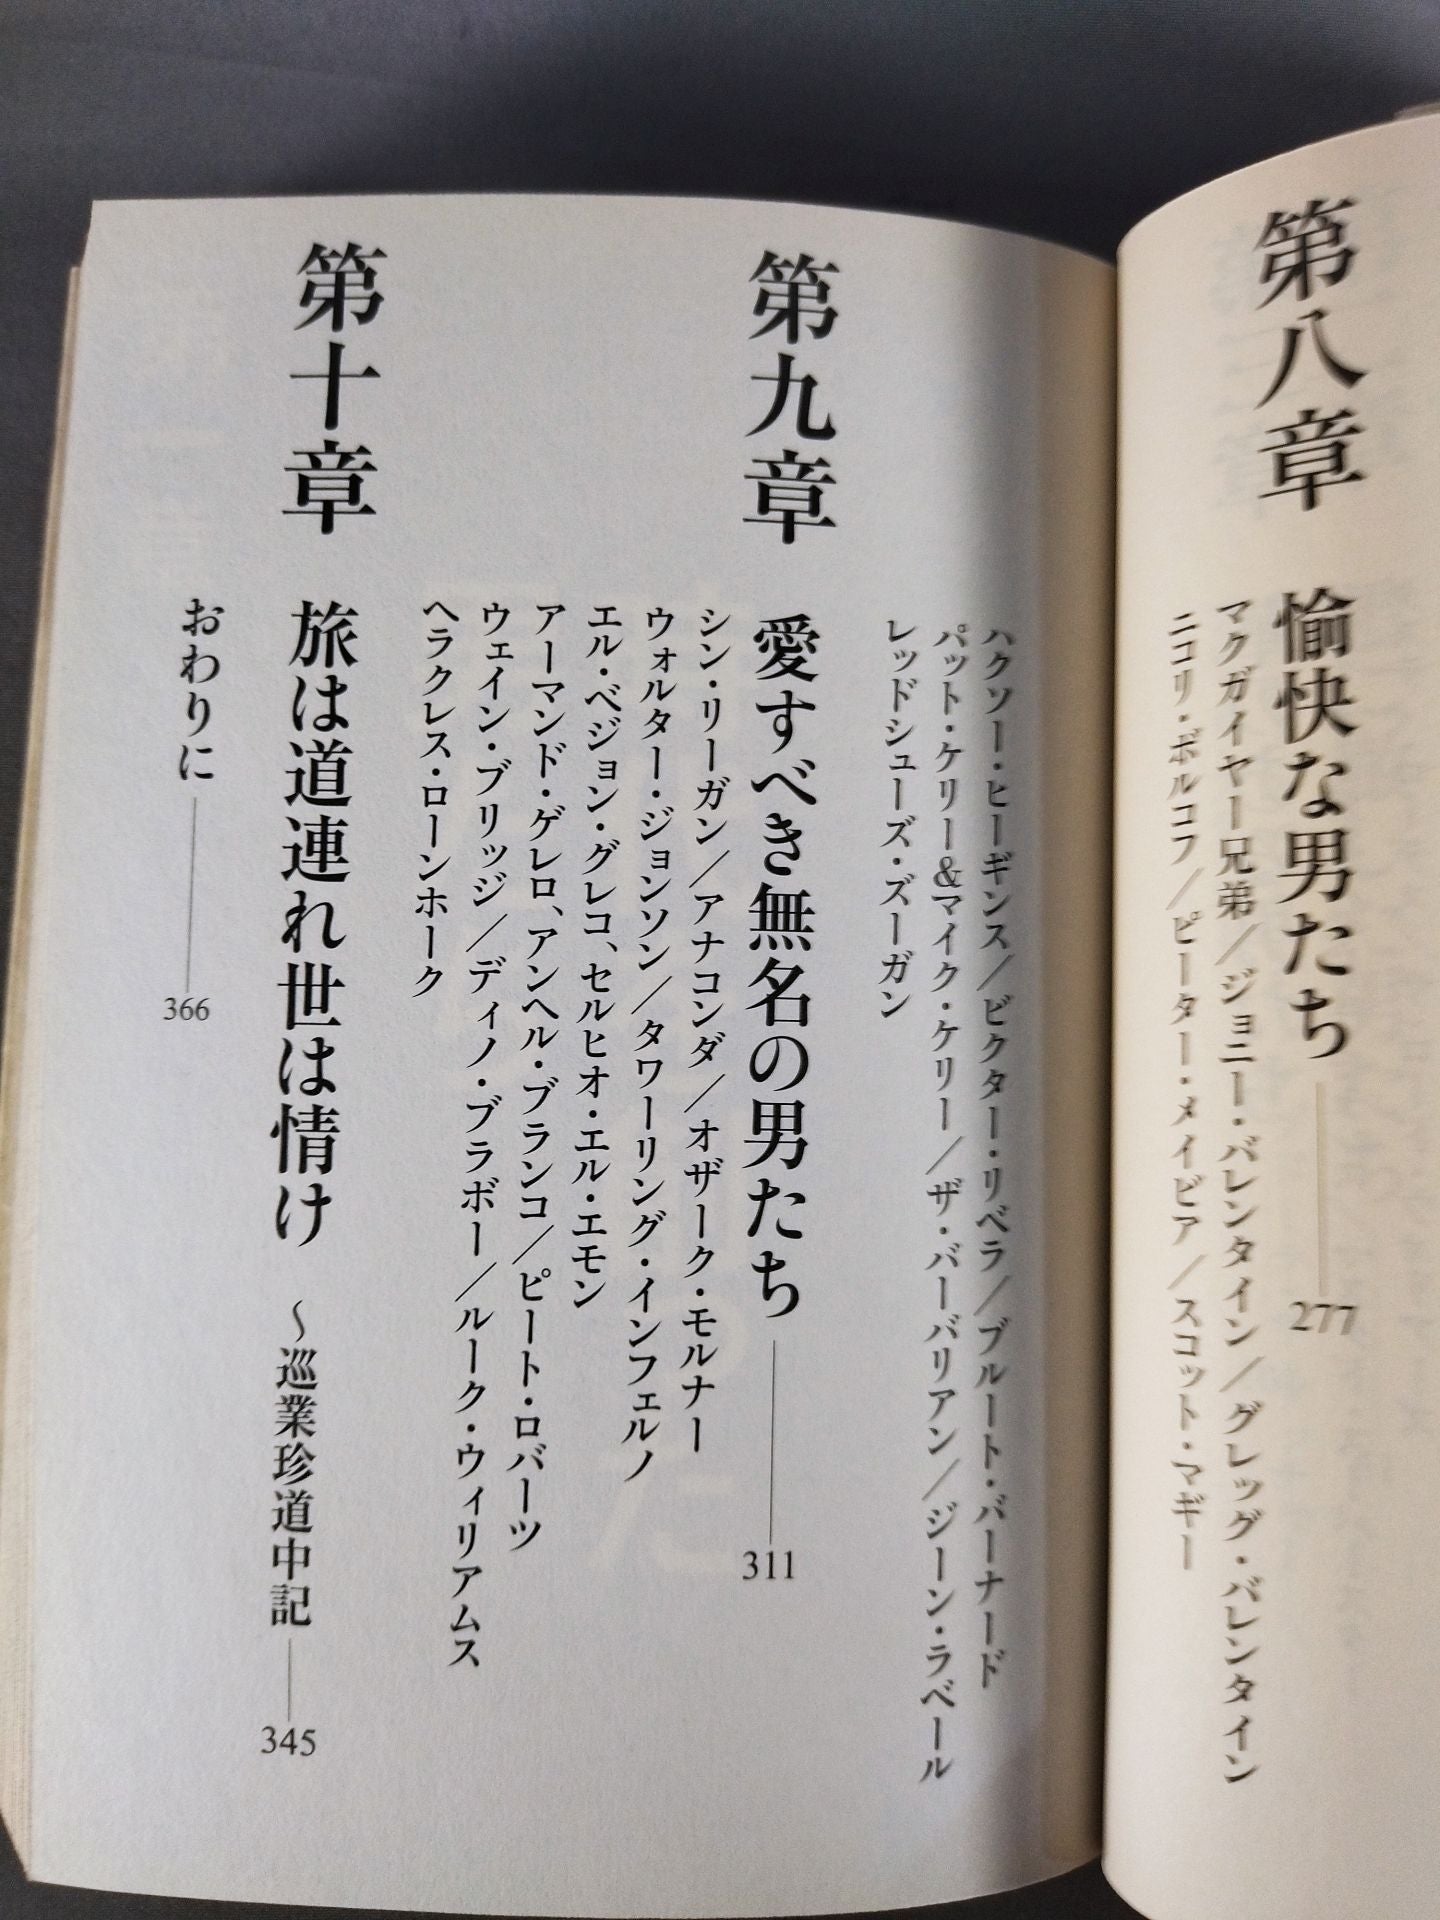 第八章 愉快な男たち 277
マクガイヤー兄弟／ジョニー・バレンタイン／グレッグ・バレンタイン
ニコリ・ボルコフ／ピーター・メイビア／スコット・マギー
ハクソー・ヒーギンス／ビクター・リベラ／ブルート・バーナード
パット・ケリー&マイク・ケリー／ザ・バーバリアン／ジーン・ラベール
レッドシューズ・ズーガン
第九章 愛すべき無名の男たち 311
シン・リーガン／アナコンダ／オザーク・モルナー
ウォルター・ジョンソン／タワーリング・インフェルノ
エル・ベジョン・グレコ、セルヒオ・エル・エモン
アーマンド・ゲレロ、アンヘル・ブランコ／ピート・ロバーツ
ウェイン・ブリッジ／ディノ・ブラボー／ルーク・ウィリアムス
ヘラクレス・ローンホーク
第十章 旅は道連れ世は情け ～巡業珍道中記 345
おわりに 366